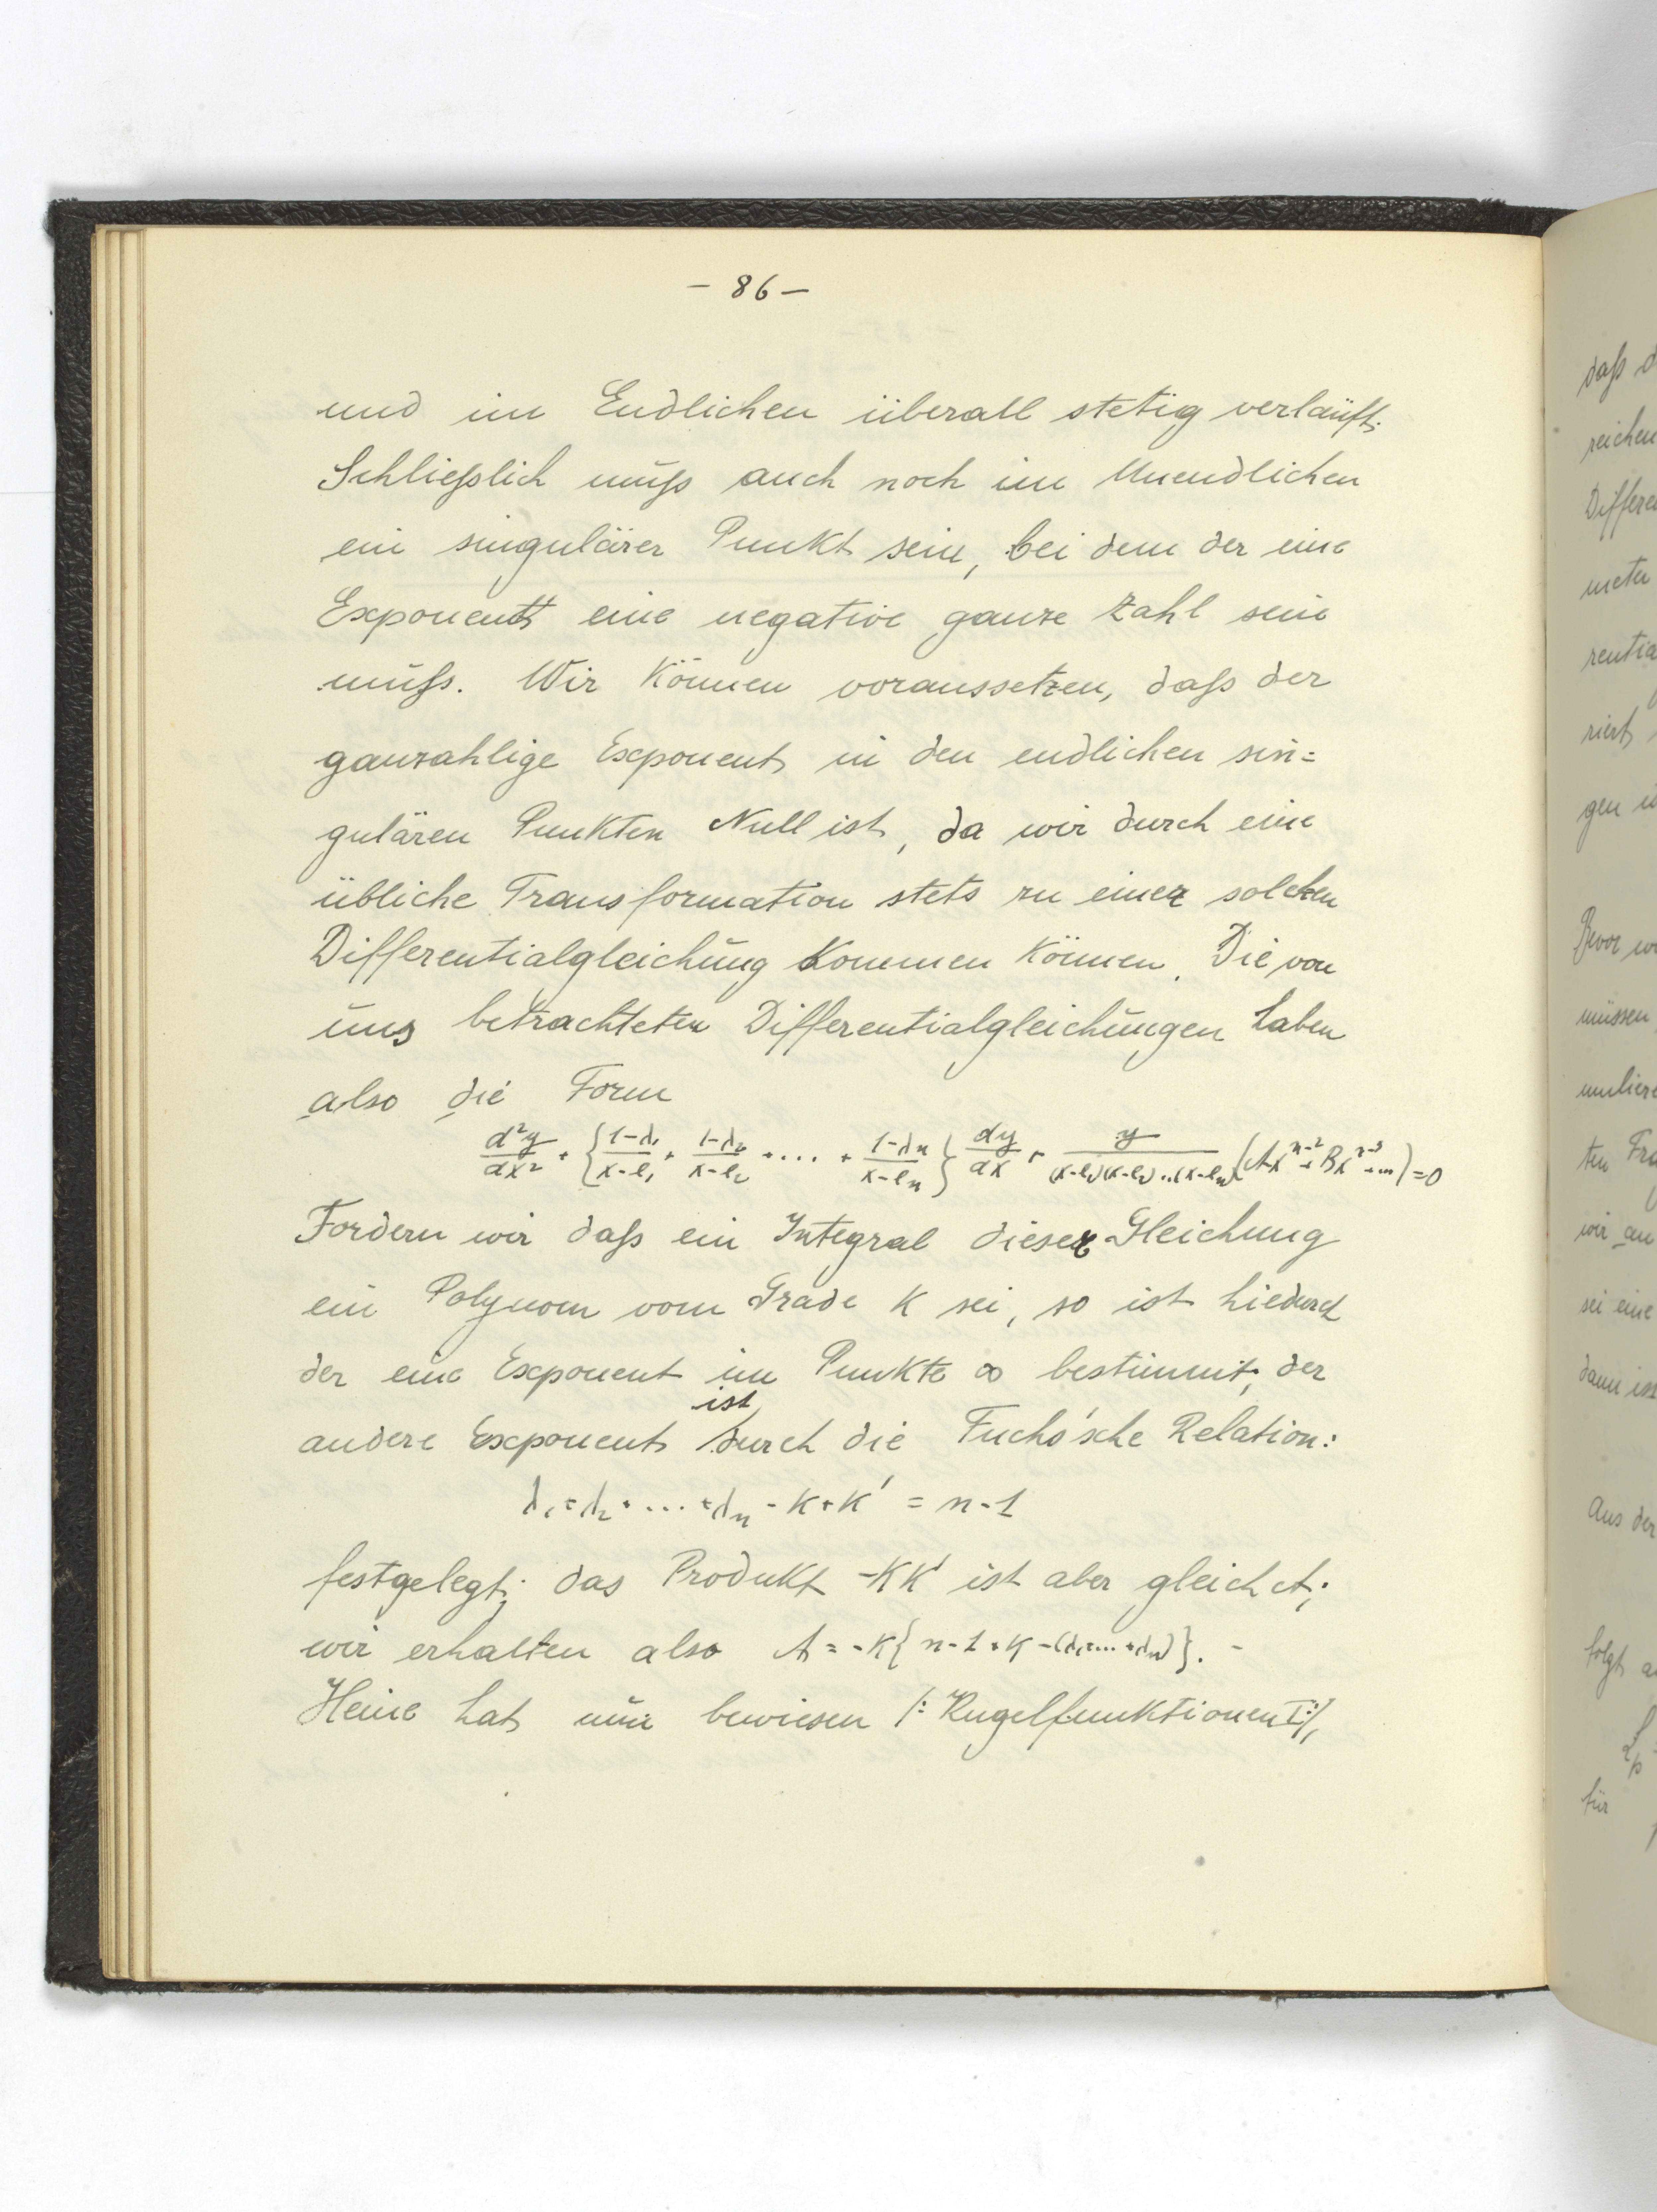 – 86 –
und im Endlichen überall stetig verläuft.
Schließlich muß auch noch im Unendlichen
ein singulärer Punkt sein, bei dem der eine
Exponent eine negative ganze Zahl sein
muß. Wir können voraussetzen, daß der
ganzahlige Exponent in den endlichen sin=
gulären Punkten Null ist, da wir durch eine
übliche Transformation stets zu einer solchen
Differentialgleichung kommen können. Die von
uns betrachteten Differentialgleichungen haben
also die Form
d²y/dx² + {1-λ₁/x-e₁ + 1-λ₂/x-e₂ + .... + 1-λₙ/x-eₙ} dy/dx + y/(x-e₁)(x-e₂)...(x-eₙ) (Axⁿ⁻² + Bxⁿ⁻³ + ...) = 0
Fordern wir daß ein Integral dieser Gleichung
ein Polynom vom Grade k sei, so ist hiedurch
der eine Exponent im Punkte ∞ bestimmt; der
andere Exponent ist durch die Fuchs'sche Relation:
λ₁+λ₂+....+λₙ - k+k' = n-1
festgelegt; das Produkt -kk' ist aber gleich A;
wir erhalten also A = -k{n-1+k-(λ₁+...+λₙ)}. –
Heine hat nun bewiesen /: Kugelfunktionen I :/,
daß
reichen
Differen
rentia
riert
gen
Bevor
müssen
ten
wir an
sei eine
dann ist
Aus der
folgt
für